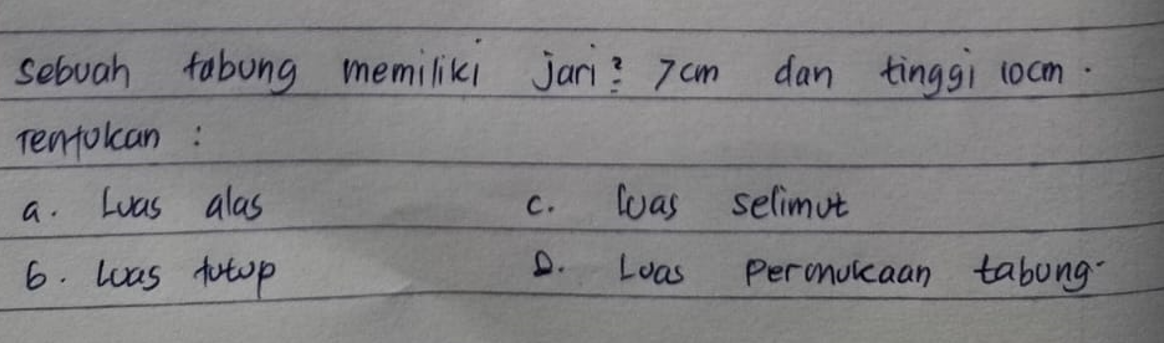 Sebuah tabung memiliki jari² 7cm dan tinggi 10cm.
Tentukan :
a. Luas alas c. luas selimut
b. luas tutup D. Luas Permukaan tabung